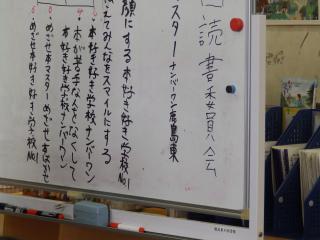 読書委員会
マスターナンバーワン鹿島東
顔にする本好き好き学校No.1
えてみんなをスマイルにする
本好き好き学校ナンバーワン
・本が苦手な人をなくして
本好き好き学校ナンバーワン
・めざせ本マスターめざせ本はかせ
・めざせ本好き好き学校No.1